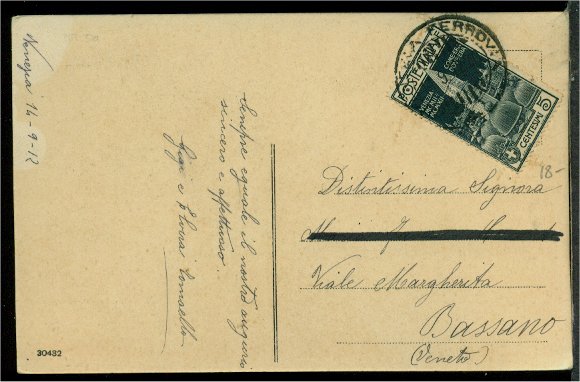 Venezia 14-9-12
Sempre eguale il nostro augurio
sincero e affettuoso.
Gigi e Elvira
FERROV
POSTE
CENTESIMI 5
18-
Distintissima Signora
Viale Margherita
Bassano
(Veneto)
30432